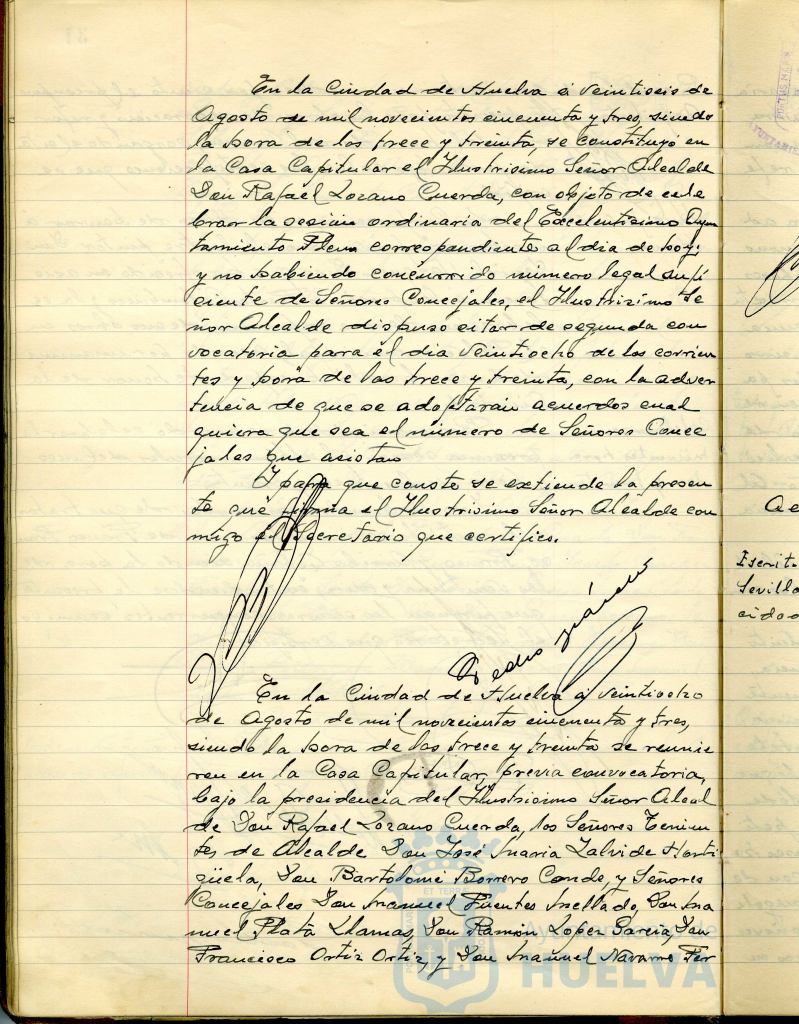 En la Ciudad de Huelva a veintiseis de
Agosto de mil novecientos cincuenta y tres, siendo
la hora de las trece y treinta, se constituyó en
la Casa Capitular el Ilustrisimo Señor Alcalde
Don Rafael Lozano Cuerda, con objeto de cele
brar la sesión ordinaria del Excelentisimo Ayun
tamiento Pleno correspondiente al dia de hoy;
y no habiendo concurrido número legal sufi
ciente de Señores Concejales, el Ilustrisimo Se
ñor Alcalde dispuso citar de segunda con
vocatoria para el dia veintiocho de los corrien
tes y hora de las trece y treinta, con la adver
tencia de que se adoptarán acuerdos cual
quiera que sea el número de Señores Conce
jales que asistan
Y para que conste se extiende la presen
te que firma el Ilustrisimo Señor Alcalde con
migo el Secretario que certifico.
Pedro
En la Ciudad de Huelva a veintiocho
de Agosto de mil novecientos cincuenta y tres,
siendo la hora de las trece y treinta se reunie
ron en la Casa Capitular, previa convocatoria,
bajo la presidencia del Ilustrisimo Señor Alcal
de Don Rafael Lozano Cuerda, los Señores Tenien
tes de Alcalde Don José Maria Zalvide Horti
güela, Don Bartolomé Borrero Conde, y Señores
Concejales Don Manuel Fuentes Mellado, Don Ma
nuel Plata Llamas, Don Ramón Lopez Garcia, Don
Francisco Ortiz Ortiz, y Don Manuel Navarro Fer
HUELVA
Ac
Escrit.
Sevilla
cidos